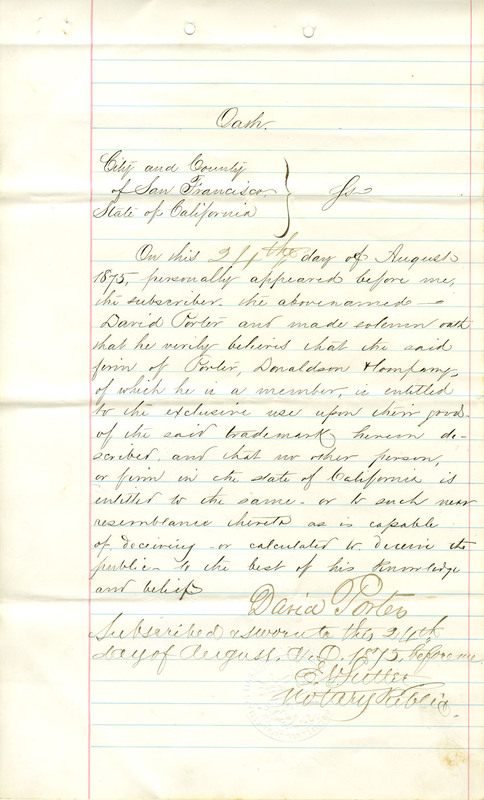 Oath.
City and County
of San Francisco
State of California } Ss
On this 24th day of August
1875, personally appeared before me,
the subscriber the abovenamed
David Porter and made solemn oath
that he verily believes that the said
firm of Porter, Donaldson & Company,
of which he is a member, is entitled
to the exclusive use upon their goods
of the said trademark herein de-
scribed and that no other person,
or firm in the state of California is
entitled to the same or to such near
resemblance thereto as is capable
of deceiving or calculated to deceive the
public to the best of his knowledge
and belief
David Porter
Subscribed & sworn to this 24th
day of August, A.D. 1875, before me
Notary Public.